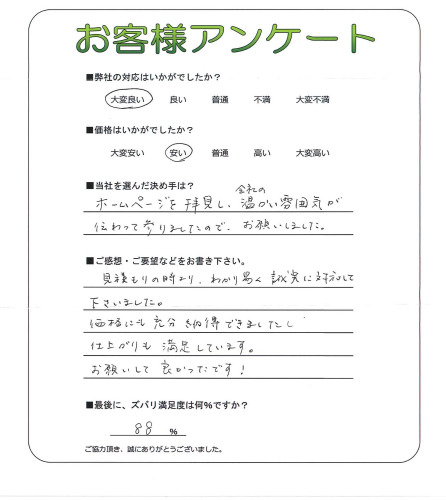 お客様アンケート
■弊社の対応はいかがでしたか?
大変良い 良い 普通 不満 大変不満
■価格はいかがでしたか?
大変安い 安い 普通 高い 大変高い
■当社を選んだ決め手は?
会社の
ホームページを拝見し、温かい雰囲気が
伝わって参りましたので、お願いしました。
■ご感想・ご要望などをお書き下さい。
見積もりの時より、わかり易く誠実に対応して
下さいました。
価格にも充分納得できましたし
仕上がりも満足しています。
お願いして良かったです!
■最後に、ズバリ満足度は何%ですか?
88 %
ご協力頂き、誠にありがとうございました。